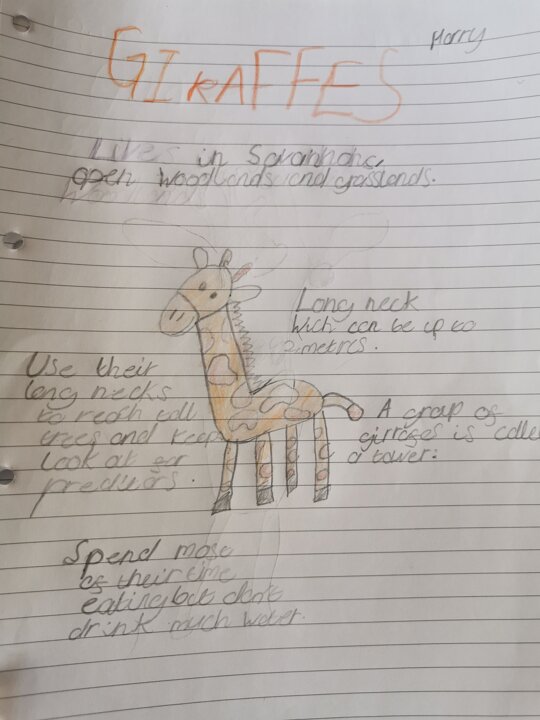 Harry
GIRAFFES
Lives in Savannahs,
open woodlands and grasslands.
Long neck
wich can be up to
2 metres.
Use their
long necks
to reach tall
trees and keep
look at for
preditors.
A group of
girrafes is calle
a tower.
Spend most
of their time
eating but don't
drink much water.